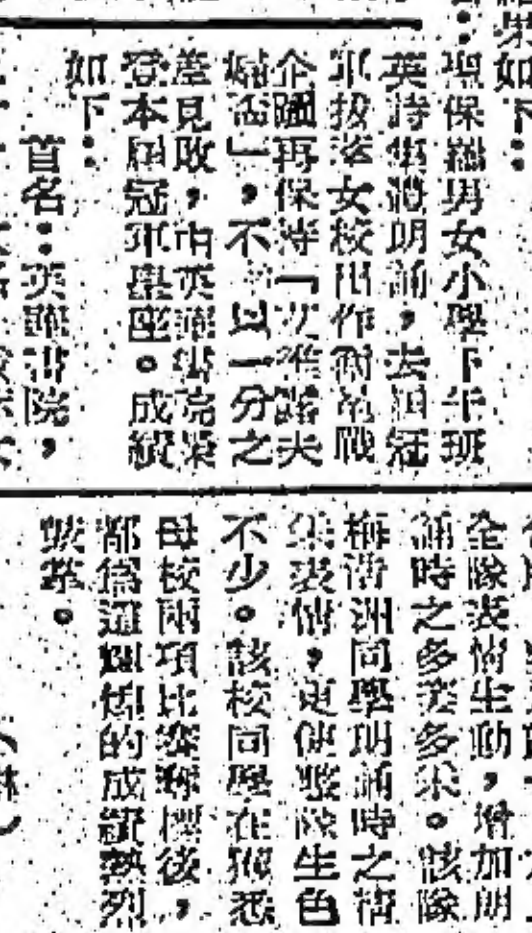 果如下：
：聖保羅男女小學下午班
英詩集體朗誦，去屆冠
軍拔萃女校出作衛冕戰
企圖再保持「次準諾夫
婦盃」，不以一分之
差見敗，由英華書院榮
登本屆冠軍寶座。成績
如下：
首名：英華書院，
全隊表情生動，增加朗
誦時之多姿多采。該隊
梅洲同學朗誦時之精
采表情，更使整隊生色
不少。該校同學在獲悉
母校兩項比賽奪標後，
都為這輝煌的成績熱烈
鼓掌。